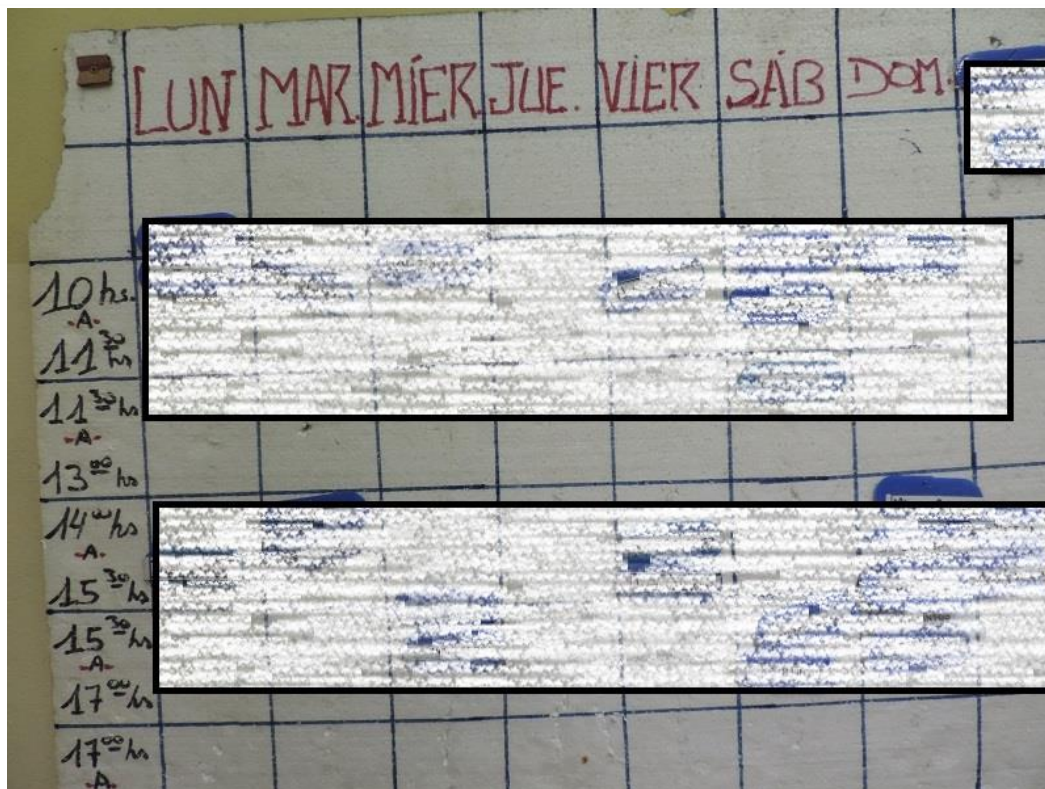 LUN MAR. MÍER. JUE. VIER SÁB DOM.
10 hs.
-A-
11 30 hs
11 30 hs
-A-
13 00 hs
14 00 hs
-A-
15 30 hs
15 30 hs
-A-
17 00 hs
17 00 hs
-A-